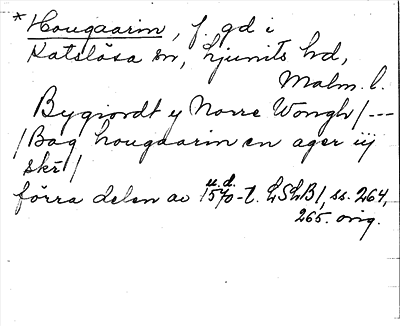 *Hougaarin, f. gd i
Katslösa sn, Ljunits hd,
Malm. l.
Bygiordt y Norre Wongh/---
/Bag hougaarin en ager iij
skr/
u. d.
förra delen av 1570-t. LSLB1, ss. 264,
265. orig.